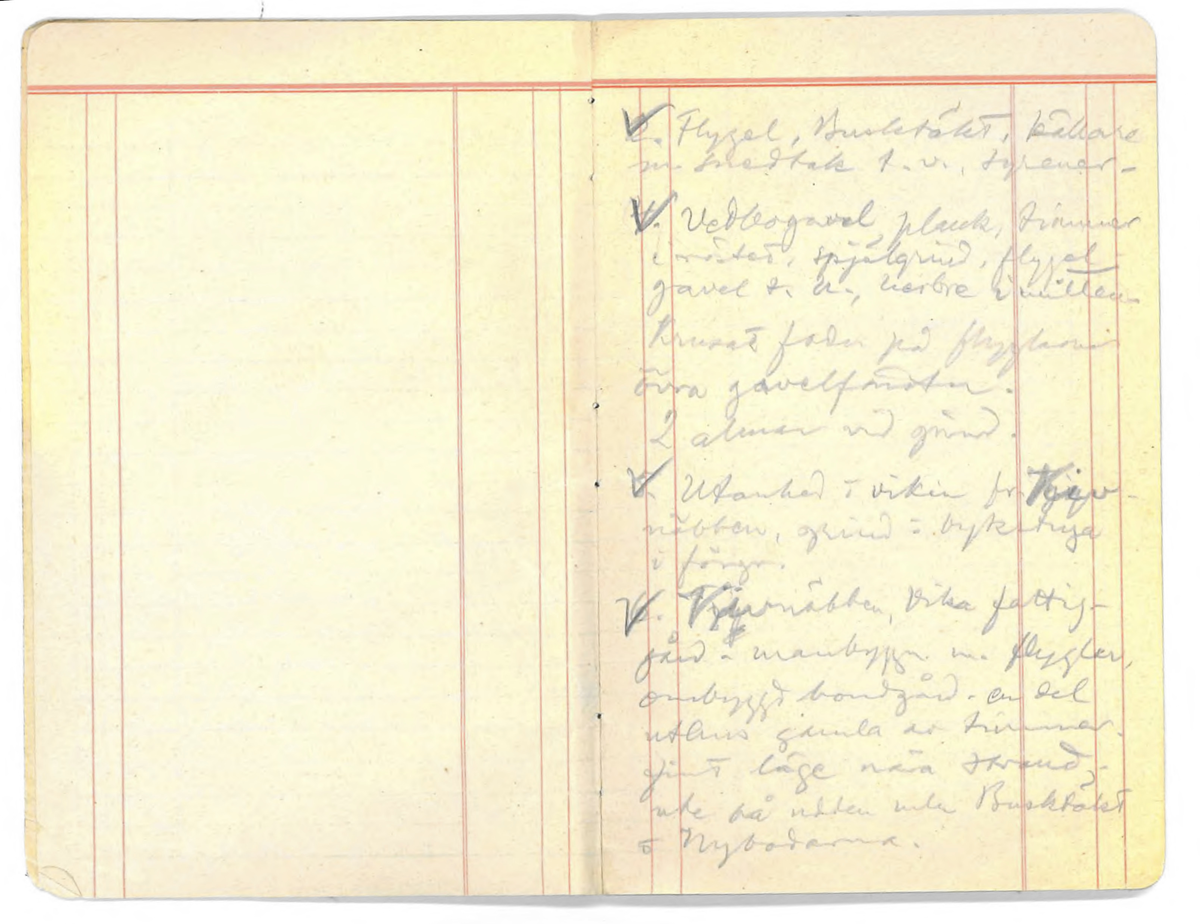 Flygel, Busktäkt, källare
m snedtak t. v., syrener-
4. Vedbogavel, plank, timmer
i röstet, spjälgrind, flygel-
gavel t. h., härbre i mitten.
Krusat foder på flyglarnas
övra gavelfönster.
2 almar vid grind.
Utanhed i viken fr.
näbben, grind o. bykstuga
i förgr.
näbben, Vika fattig-
gård - manbyggn m. flyglar,
ombyggd bondgård - en del
uthus gamla av timmer.
Fint läge nära strand,
ute på udden mln Busktäkt
o Nybodarna.